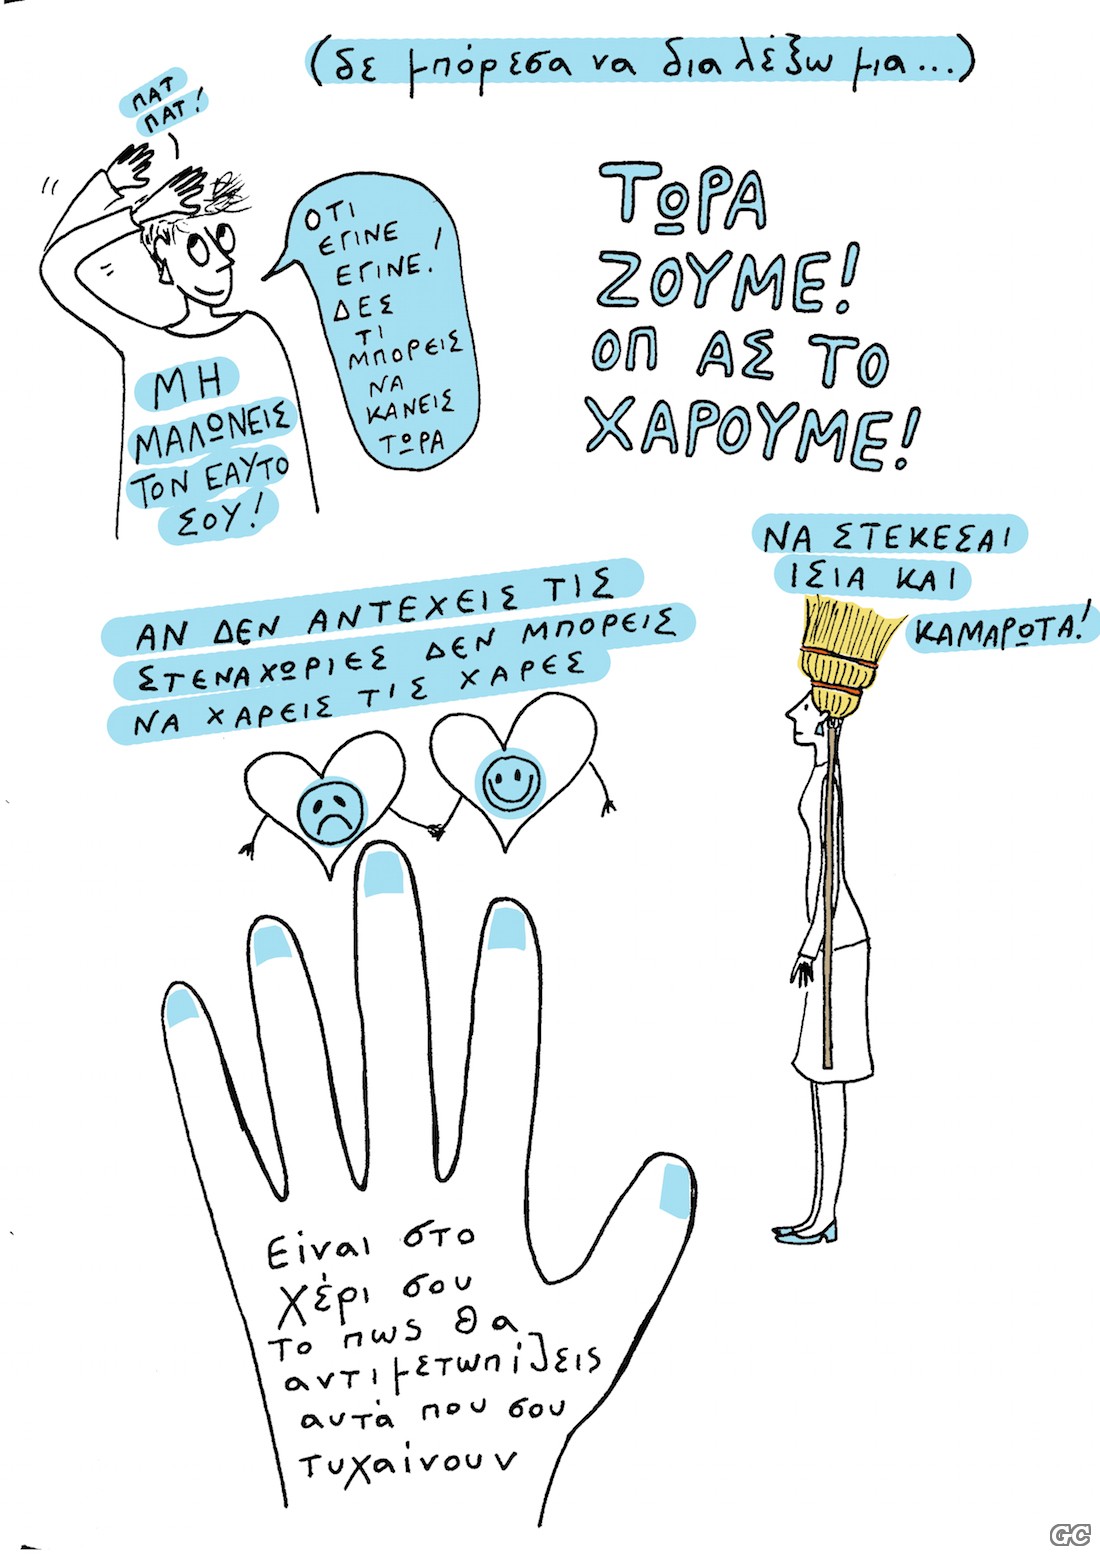 (δε μπόρεσα να διαλέξω μια...)
ΠΑΤ
ΠΑΤ!
ΟΤΙ
ΕΓΙΝΕ
ΕΓΙΝΕ!
ΔΕΣ
ΤΙ
ΜΠΟΡΕΙΣ
ΝΑ
ΚΑΝΕΙΣ
ΤΩΡΑ
ΜΗ
ΜΑΛΩΝΕΙΣ
ΤΟΝ ΕΑΥΤΟ
ΣΟΥ!
ΤΩΡΑ
ΖΟΥΜΕ!
ΟΠ ΑΣ ΤΟ
ΧΑΡΟΥΜΕ!
ΝΑ ΣΤΕΚΕΣΑΙ
ΙΣΙΑ ΚΑΙ
ΚΑΜΑΡΩΤΑ!
ΑΝ ΔΕΝ ΑΝΤΕΧΕΙΣ ΤΙΣ
ΣΤΕΝΑΧΩΡΙΕΣ ΔΕΝ ΜΠΟΡΕΙΣ
ΝΑ ΧΑΡΕΙΣ ΤΙΣ ΧΑΡΕΣ
Είναι στο
χέρι σου
το πως θα
αντιμετωπίζεις
αυτά που σου
τυχαίνουν
GC